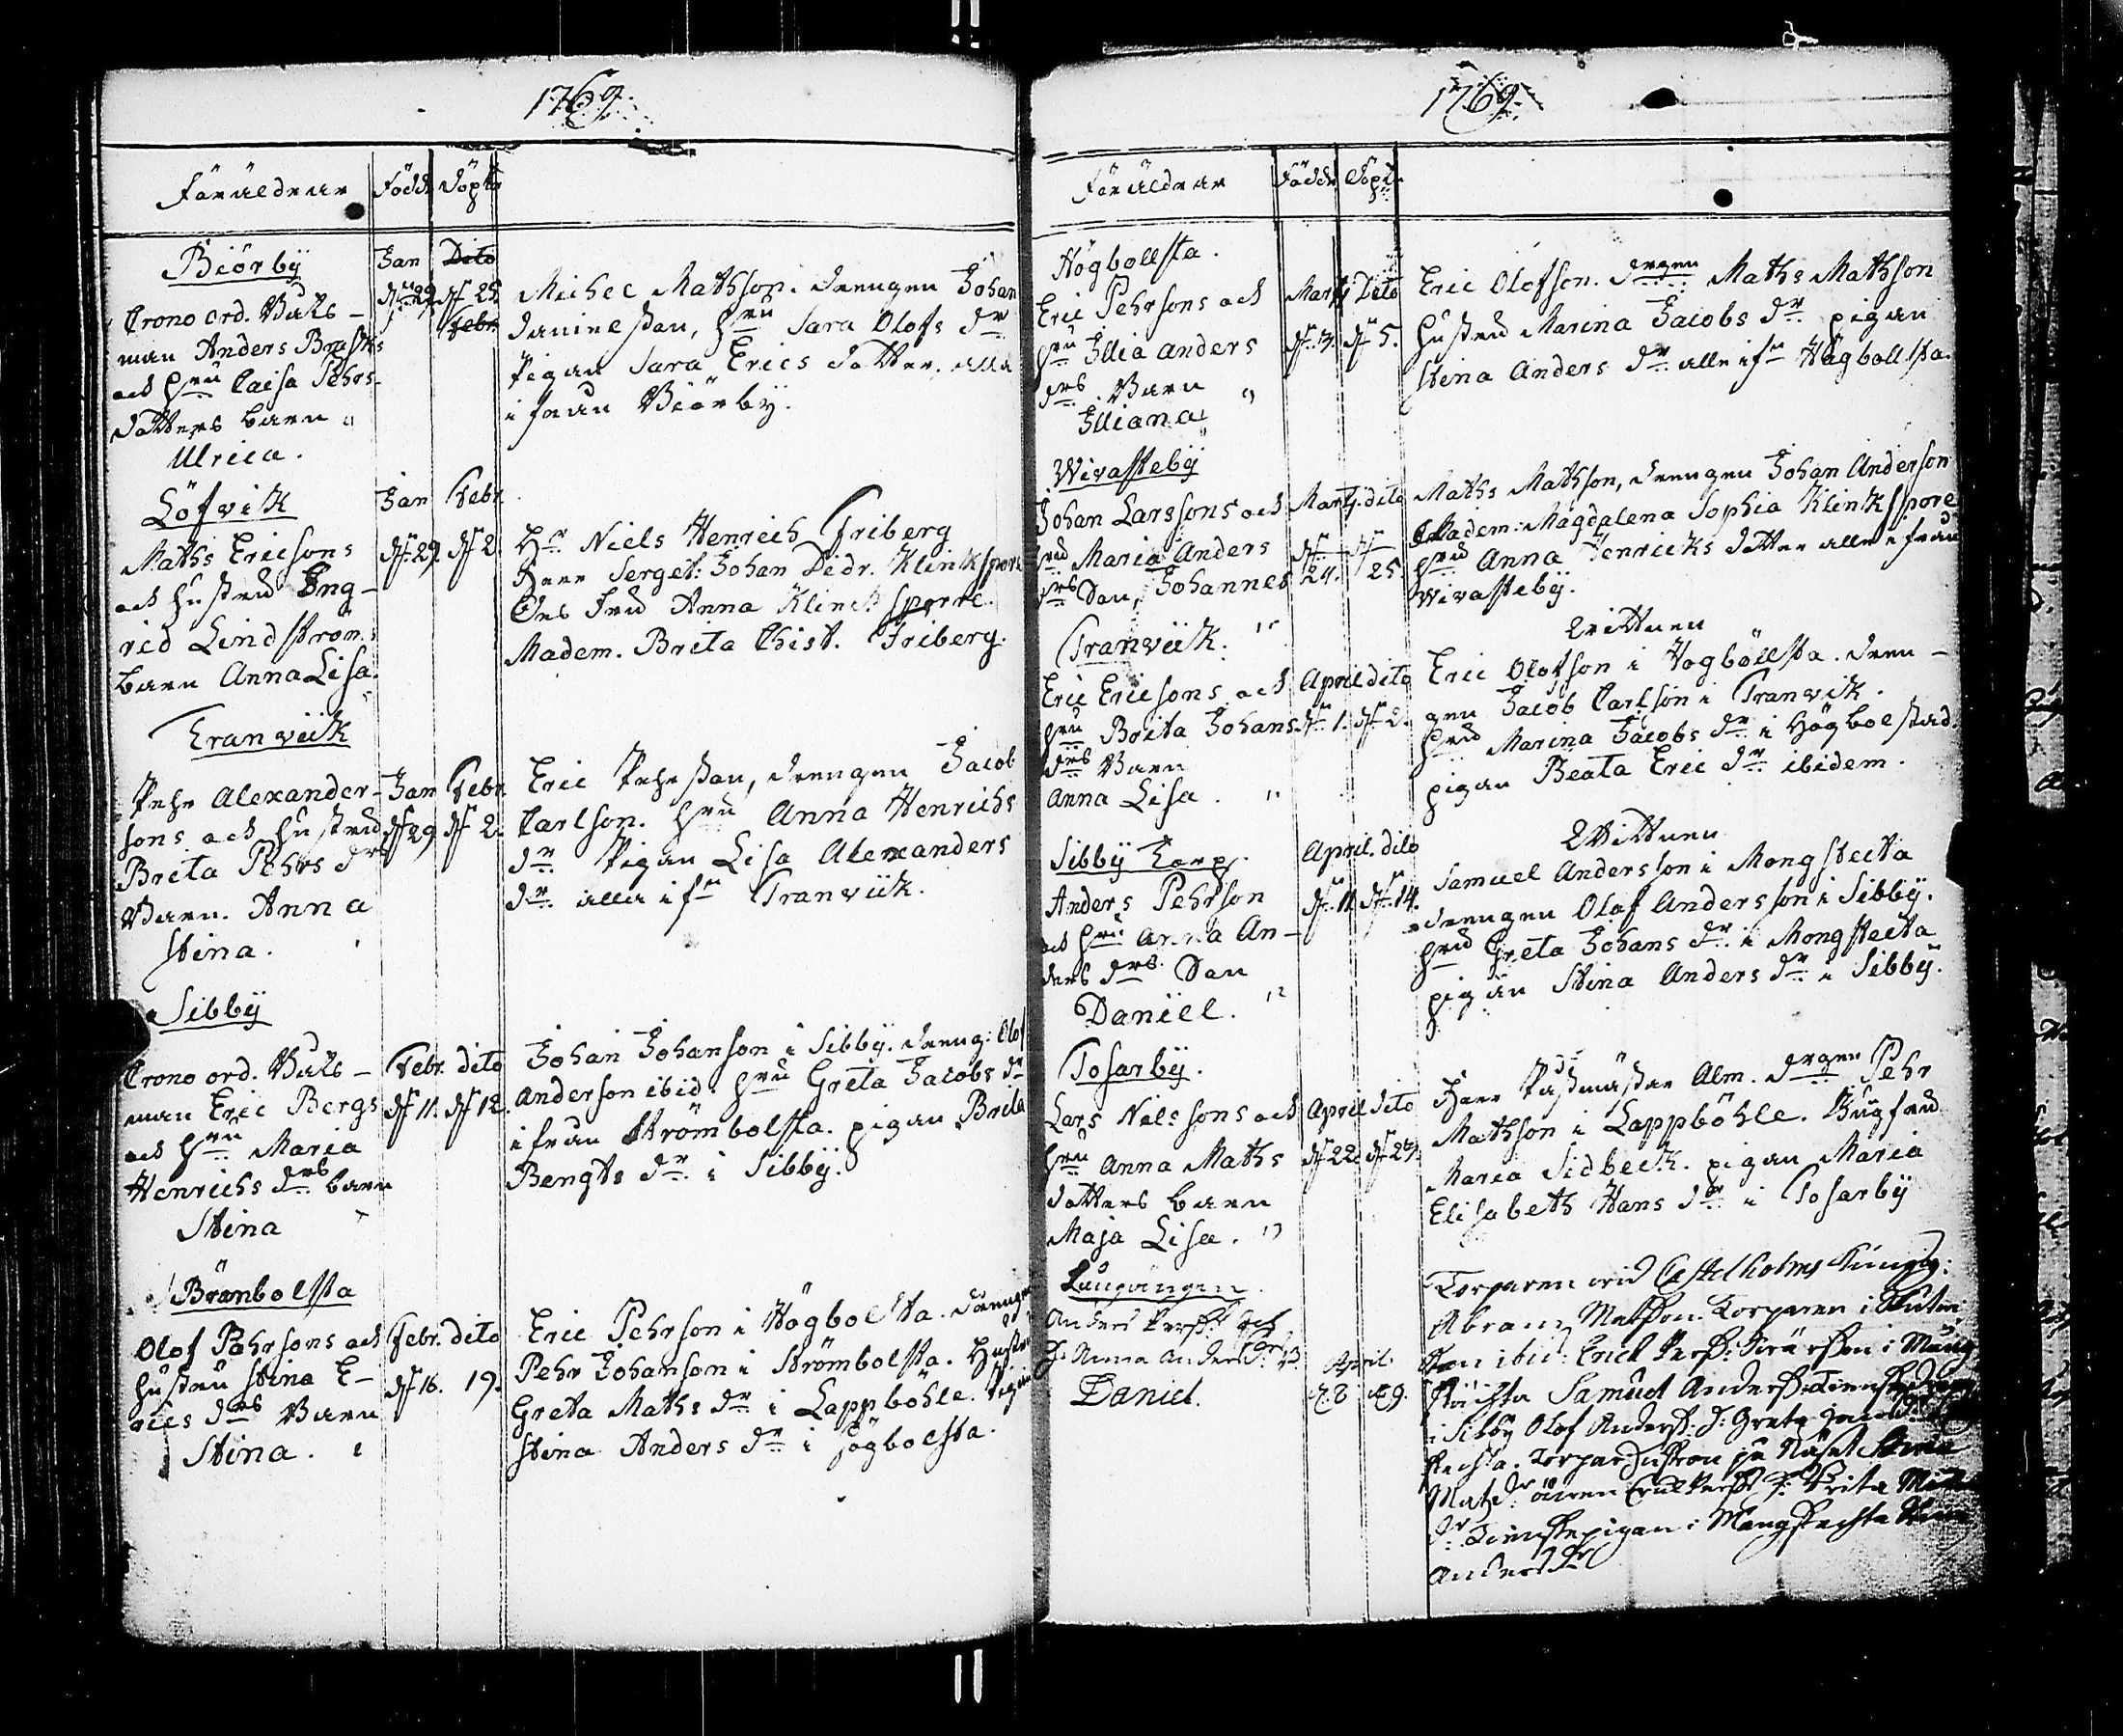 1769.
Föräldrar Född Döpt
Biörby Jan Dito
Crono ord. Båts-
man Anders Brasks
och hru Caisa Pehrs-
dotters barn
Ulrica.
d. 29. d. 25. Febr.
Michec Mathson. drengen Johan
Danielsson, hru Sara Olofs dr
Pigan Sara Erics dotter. alla
ifrån Biörby.
Löfvik Jan Febr.
Maths Ericsons
och hustru Ing-
rid Lindströms
barn Anna Lisa.
d. 29. d. 2.
Hr Niels Henrich Friberg
Herr Serget: Johan Dedr. Klinkspore
Des fru Anna Klincksporre.
Madem. Brita Chist. Friberg.
Tranviik
Pehr Alexander-
sons och hustru
Breta Pehrs drs
Barn. Anna
Stina.
Jan Febr.
d. 29 d. 2.
Eric Pehrsson, drengen Jacob
Carlson. hru Anna Henrichs
dr Pigan Lisa Alexanders
dr alla ifn Tranviik.
Sibbÿ
Crono ord. Båts-
man Eric Bergs
och hru Maria
Henrichs drs barn
Stina
Febr. dito
d. 11. d. 12.
Johan Johanson i Sibbÿ. dreng: Olof
Anderson ibid. hru Greta Jacobs dr
ifrån Strömbolsta. pigan Brita
Bengts dr i Sibbÿ.
Brömbolsta
Olof Pehrsons och
hustru Stina E-
rics drs Barn
Stina.
Febr. dito
d. 16. 19.
Eric Pehrson i Högbolsta. drengen
Pehr Johanson i Strömbolsta. Hustru
Greta Maths dr i Lappböhle. Pigan
Stina Anders dr i Högbolsta.
1769.
Föräldrar Född Döpt
Högbollsta.
Eric Pehrsons och
hru Illia Anders
drs Barn
Illiana
Martÿ Dito
d. d. 5.
Eric Olofson. drgen Maths Mathson
hustru Marina Jacobs dr pigan
Stina Anders dr alle ifn Högbollsta.
Wivastebÿ
Johan Larssons och
hru Maria Anders
drs Son, Johannes
Martÿ. dito
d. 24. d. 25.
Maths Mathson, drengen Johan Anderson
Madem: Magdalena Sophia Klinkspore
hru Anna Henricks dotter alle ifrån
Wivastebÿ.
Tranviik.
Eric Ericsons och
hru Brita Johans
drs Barn
Anna Lisa.
April dito
d. 1. d. 2.
Wittnen
Eric Olofson i Hogböllsta. dren-
gen Jacob Carlson i Tranvik.
hru Marina Jacobs dr i Högbolstad.
pigan Beata Eric dr ibidem.
Sibbÿ Torp.
Anders Pehrson
och hru Anna An-
ders drs Son
Daniel.
April. dito
d. 11. d. 14.
Wittnen
Samuel Andersson i Mongsteckta
drengen Olof Andersson i Sibbÿ.
hru Greta Johans dr i Mongsteckta
pigan Stina Anders dr i Sibbÿ.
Tosarbÿ.
Lars Nils sons och
hru Anna Maths
dotters barn
Maja Lisa.
April dito
d. 22
Herr Påstmäster Alm. drgen Pehr
Mathson i Lappböhle. Jugfru
Maria Sidbeck. pigan Maria
Elisabeth Hans dr i Tosarbÿ
Långängen
Anders Perss: och
H: Anna Anders dr
Daniel.
April.
d. 8 d. 9.
Torparen wid Castelholms Kungsg:
Abram Matsson. Torparen i
ibid: Erick Perss:
Samuel Anderss:
i Sibbÿ Olof Anderss: H: Greta
på Näset Stina
Mats dr
dr Tienstepigan i
Anders dr